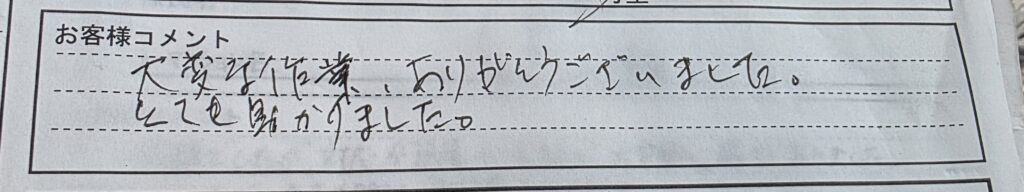 お客様コメント
大変な作業、ありがとうございました。
とても助かりました。